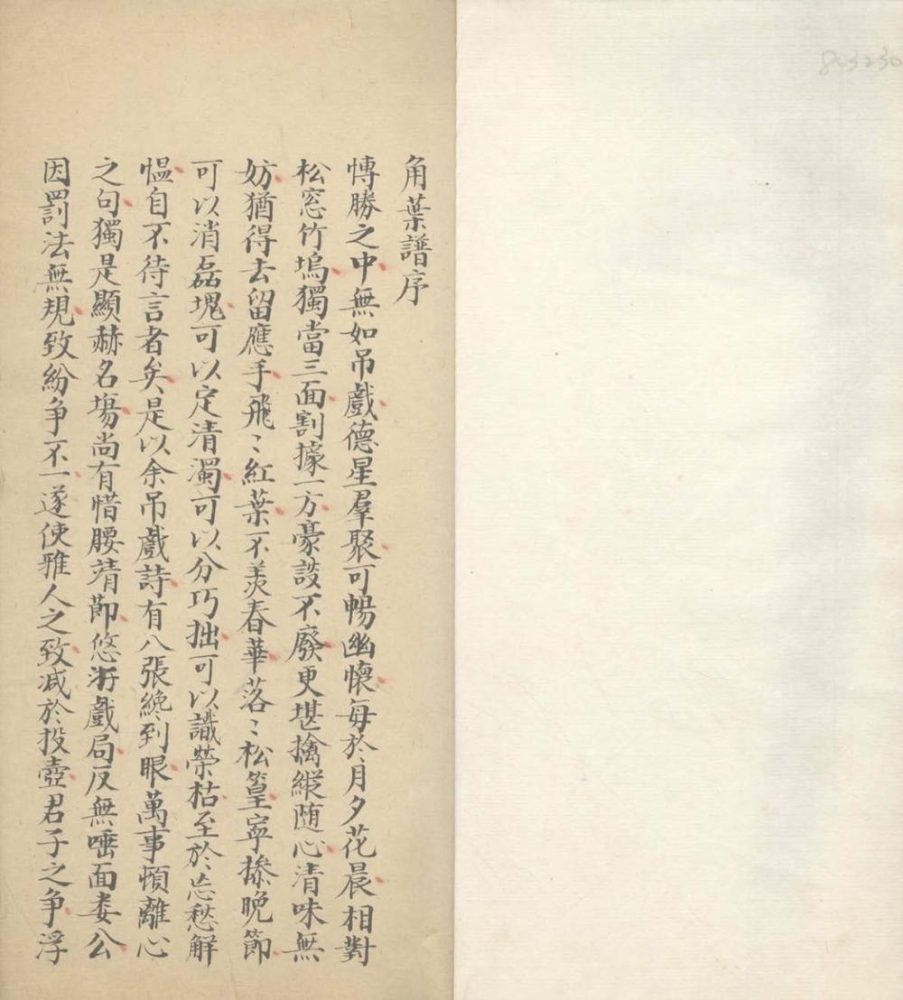 角葉譜序
愽勝之中無如吊戲德星羣聚可暢幽懷每於月夕花晨相對
松窓竹塢獨當三面割據一方豪談不廢更堪擒縱随心清味無
妨猶得去留應手飛〻紅葉不羡春華落〻松篁寧捺晩節
可以消磊塊可以定清濁可以分巧拙可以識榮枯至於忘愁解
愠自不待言者矣是以余吊戲詩有八張纔到眼萬事頓離心
之句獨是顯赫名塲尚有惜腰靖節悠游戲局反無唾面婁公
因罰法無規致紛争不一遂使雅人之致减於投壺君子之争浮
803230